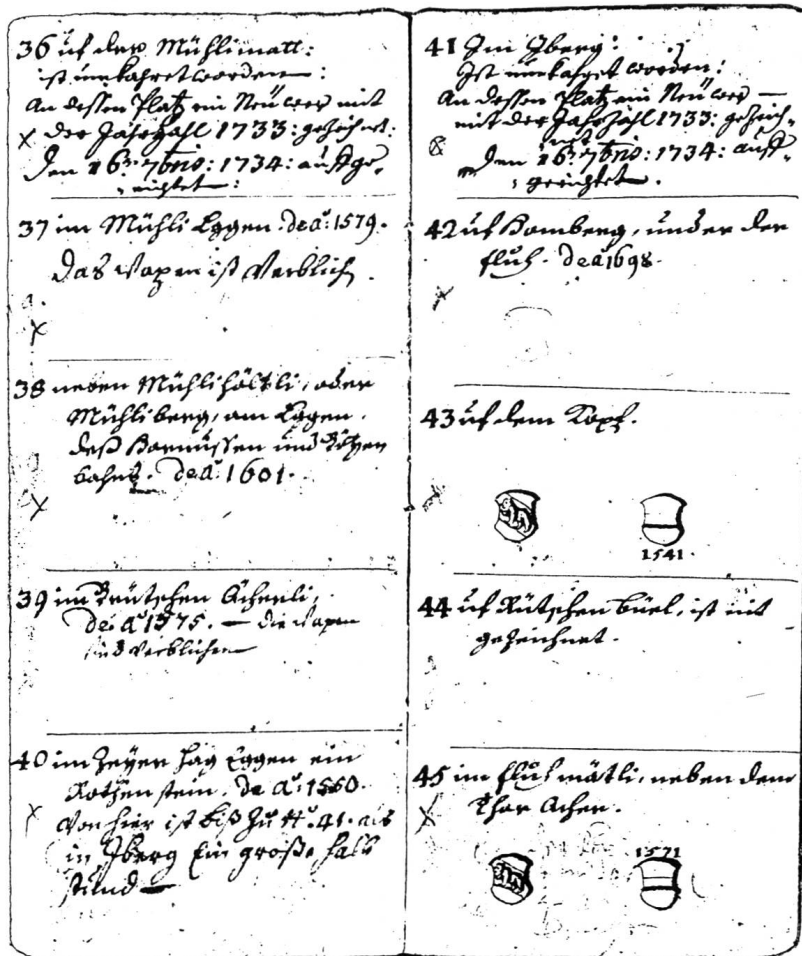 36 uf der Mühlimatt:
ist umkahret worden:
An dessen Platz ein Neüwer mit
der Jahrzahl 1733: gezeichnet:
Den 16: 7bris: 1734: auffge-
richtet:
37 im Mühli Eggen. de aº: 1579.
Das Wapen ist Verblich
38 neben Mühlihöltzli, oder
Mühliberg, am Eggen.
deß Harnüssen und
bahns. de aº: 1601.
39 im Reütschen Acherli,
de aº 1575. — die wapen
sind verblichen
40 im Zeyer hag Eggen ein
Rothen stein. de aº: 1560.
Von hier ist biß Zu Nº. 41. als
in Jberg Ein große halb
stund —
41 Im Jberg:
Ist umkahret worden:
An dessen Platz ein Neüwer —
mit der Jahrzahl 1733: gezeich-
net
Den 16: 7bris: 1734: auff-
gerichtet.
42 uf Homberg, under der
fluh. de aº 1698.
43 uf dem Kopf.
1541.
44 uf Rütschenbüel, ist nit
gezeichnet.
45 im fluhmätli, neben dem
Thor Acher.
1571